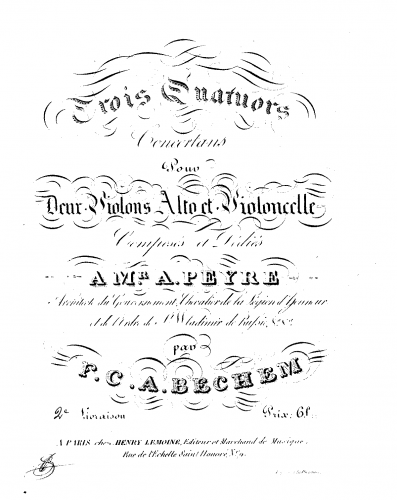 Trois Quatuors
Concertans
Pour
Deux Violons Alto et Violoncelle
Composés et Dédiés
A Mr. A. PEYRE
Architecte du Gouvernement, Chevalier de la Légion d'Honneur
et de l'Ordre de St. Wladimir de Russie, &c. &c.
par
F. C. A. BECHEM
2e. Livraison Prix: 6f.
A PARIS chez HENRY LEMOINE, Editeur et Marchand de Musique,
Rue de l'Echelle Saint Honoré, No. 9.